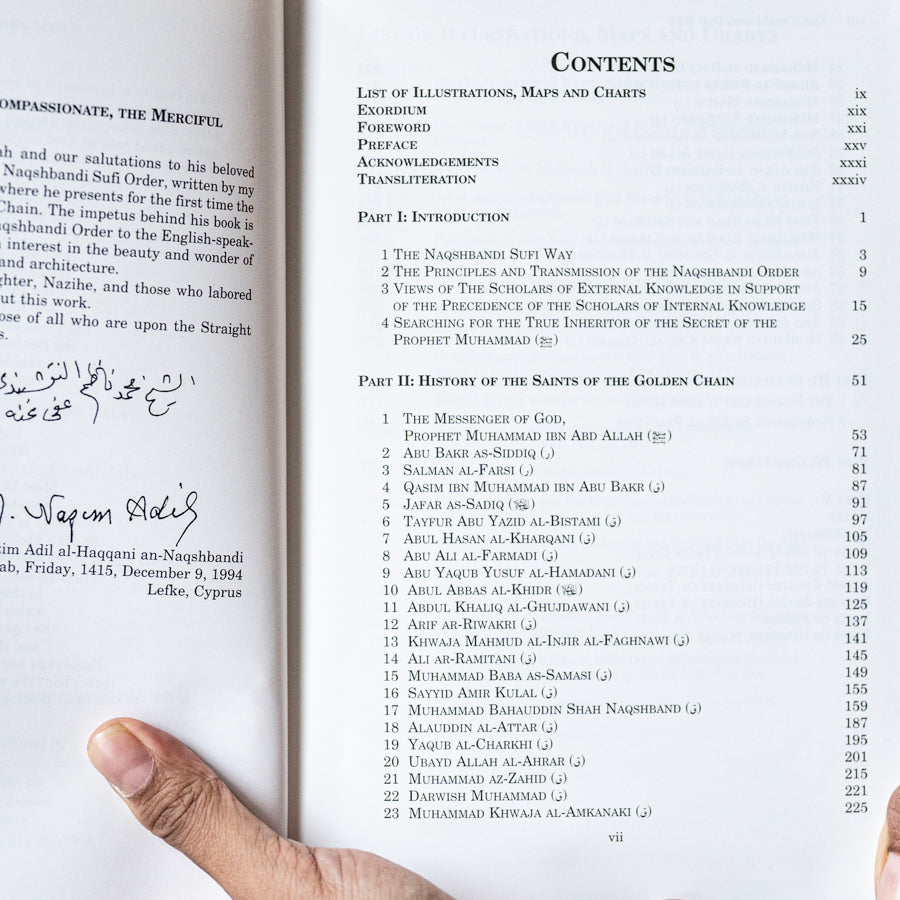 COMPASSIONATE, THE MERCIFUL
and our salutations to his beloved
Naqshbandi Sufi Order, written by my
where he presents for the first time the
Chain. The impetus behind his book is
Order to the English-speak-
interest in the beauty and wonder of
and architecture.
Nazihe, and those who labored
this work.
of all who are upon the Straight
الشيخ محمد ناظم النقشبندي
عفي عنه
Nazim Adil
Adil al-Haqqani an-Naqshbandi
Friday, 1415, December 9, 1994
Lefke, Cyprus
CONTENTS
LIST OF ILLUSTRATIONS, MAPS AND CHARTS ix
EXORDIUM xix
FOREWORD xxi
PREFACE xxv
ACKNOWLEDGEMENTS xxxi
TRANSLITERATION xxxiv
PART I: INTRODUCTION 1
1 THE NAQSHBANDI SUFI WAY 3
2 THE PRINCIPLES AND TRANSMISSION OF THE NAQSHBANDI ORDER 9
3 VIEWS OF THE SCHOLARS OF EXTERNAL KNOWLEDGE IN SUPPORT
OF THE PRECEDENCE OF THE SCHOLARS OF INTERNAL KNOWLEDGE 15
4 SEARCHING FOR THE TRUE INHERITOR OF THE SECRET OF THE
PROPHET MUHAMMAD (ﷺ) 25
PART II: HISTORY OF THE SAINTS OF THE GOLDEN CHAIN 51
1 THE MESSENGER OF GOD,
PROPHET MUHAMMAD IBN ABD ALLAH (ﷺ) 53
2 ABU BAKR AS-SIDDIQ (ر) 71
3 SALMAN AL-FARSI (ر) 81
4 QASIM IBN MUHAMMAD IBN ABU BAKR (ق) 87
5 JAFAR AS-SADIQ 91
6 TAYFUR ABU YAZID AL-BISTAMI (ق) 97
7 ABUL HASAN AL-KHARQANI (ق) 105
8 ABU ALI AL-FARMADI (ق) 109
9 ABU YAQUB YUSUF AL-HAMADANI (ق) 113
10 ABUL ABBAS AL-KHIDR 119
11 ABDUL KHALIQ AL-GHUJDAWANI (ق) 125
12 ARIF AR-RIWAKRI (ق) 137
13 KHWAJA MAHMUD AL-INJIR AL-FAGHNAWI (ق) 141
14 ALI AR-RAMITANI (ق) 145
15 MUHAMMAD BABA AS-SAMASI (ق) 149
16 SAYYID AMIR KULAL (ق) 155
17 MUHAMMAD BAHAUDDIN SHAH NAQSHBAND (ق) 159
18 ALAUDDIN AL-ATTAR (ق) 187
19 YAQUB AL-CHARKHI (ق) 195
20 UBAYD ALLAH AL-AHRAR (ق) 201
21 MUHAMMAD AZ-ZAHID (ق) 215
22 DARWISH MUHAMMAD (ق) 221
23 MUHAMMAD KHWAJA AL-AMKANAKI (ق) 225
vii